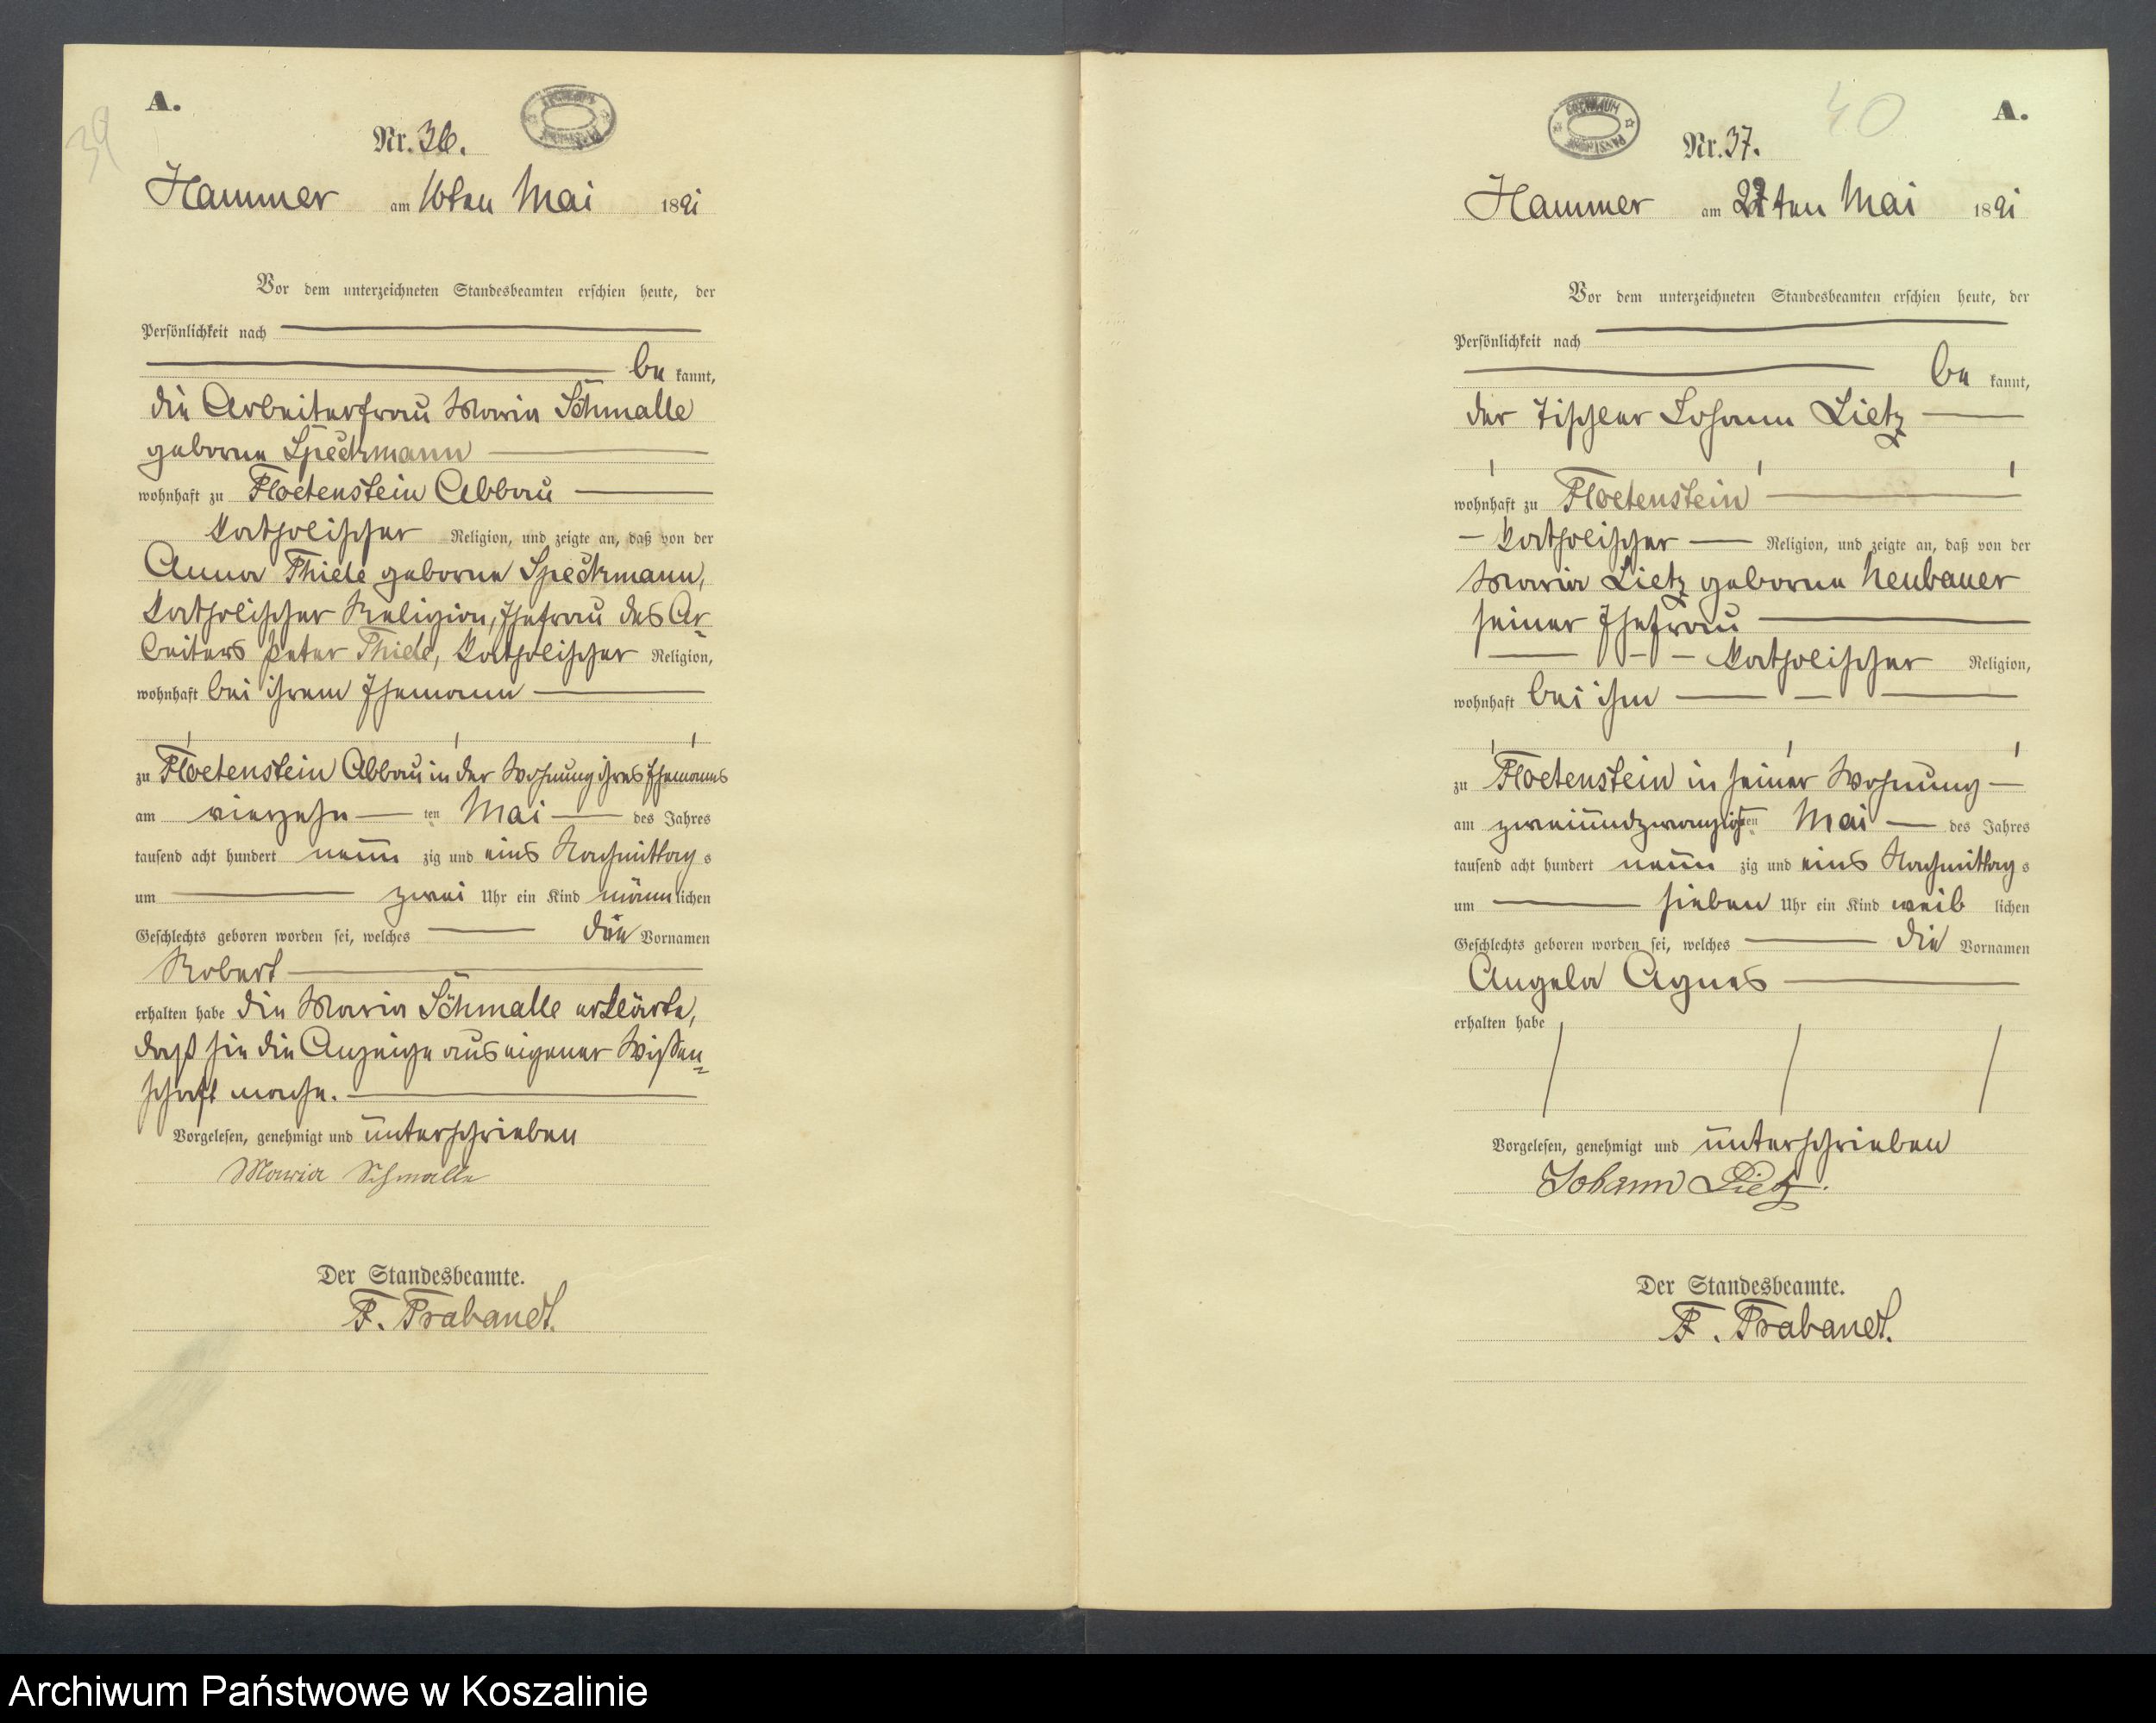 39
A.
ARCHIWUM PAŃSTWOWE
Nr. 36.
Hammer am 16ten Mai 1891
Vor dem unterzeichneten Standesbeamten erschien heute, der
Persönlichkeit nach
be kannt,
die Arbeiterfrau Maria Schmalle
geborne Speckmann
wohnhaft zu Floetenstein Abbau
katholischer Religion, und zeigte an, daß von der
Anna Thiele geborne Speckmann,
katholischer Religion, Ehefrau des Ar
beiters Peter Thiele, katholischer Religion,
wohnhaft bei ihrem Ehemann
zu Floetenstein Abbau in der Wohnung ihres Ehemanns
am vierzehn ten Mai des Jahres
tausend acht hundert neun zig und eins Nachmittag s
um zwei Uhr ein Kind männ lichen
Geschlechts geboren worden sei, welches den Vornamen
Robert
erhalten habe die Maria Schmalle erklärte,
daß sie die Anzeige aus eigener Wissen=
schaft mache.
Vorgelesen, genehmigt und unterschrieben
Maria Schmalle
Der Standesbeamte.
F. Trabandt.
40
A.
ARCHIWUM PAŃSTWOWE
Nr. 37.
Hammer am 22ten Mai 1891
Vor dem unterzeichneten Standesbeamten erschien heute, der
Persönlichkeit nach
be kannt,
der Tischler Johann Lietz
wohnhaft zu Floetenstein
katholischer Religion, und zeigte an, daß von der
Maria Lietz geborne Neubauer
seiner Ehefrau
katholischer Religion,
wohnhaft bei ihm
zu Floetenstein in seiner Wohnung
am zweiundzwanzigsten Mai des Jahres
tausend acht hundert neun zig und eins Nachmittag s
um sieben Uhr ein Kind weib lichen
Geschlechts geboren worden sei, welches die Vornamen
Angela Agnes
erhalten habe
Vorgelesen, genehmigt und unterschrieben
Johann Lietz.
Der Standesbeamte.
F. Trabandt.
Archiwum Państwowe w Koszalinie